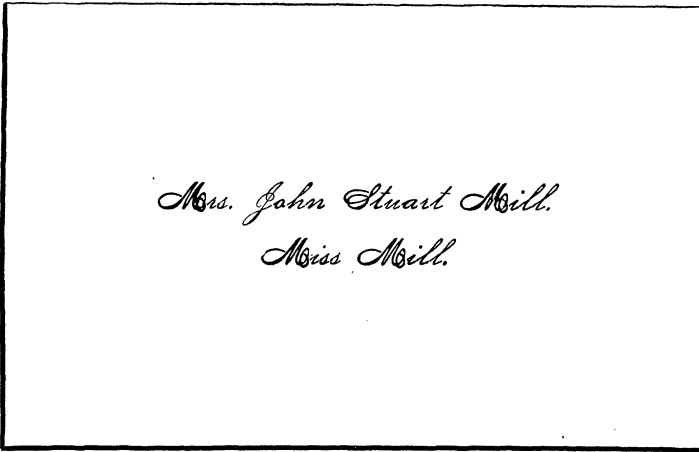 Mrs. John Stuart Mill.
Miss Mill.